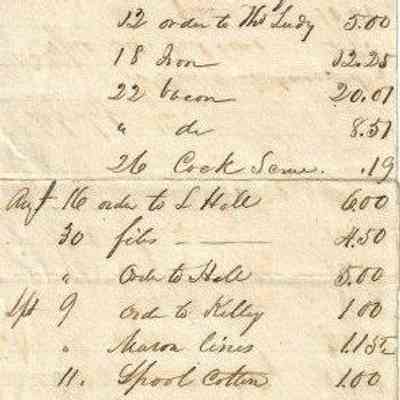 12 order to Thos Ludy 5.00
18 Iron 12.25
22 bacon 20.01
" do 8.51
26 Cock Screw. .19
Augt 16 order to L Hall 6.00
30 files 4.50
" Order to Hall 5.00
Spt 9 order to Kelley 1 00
" Mason lines
11. Spool Cotton 1.00